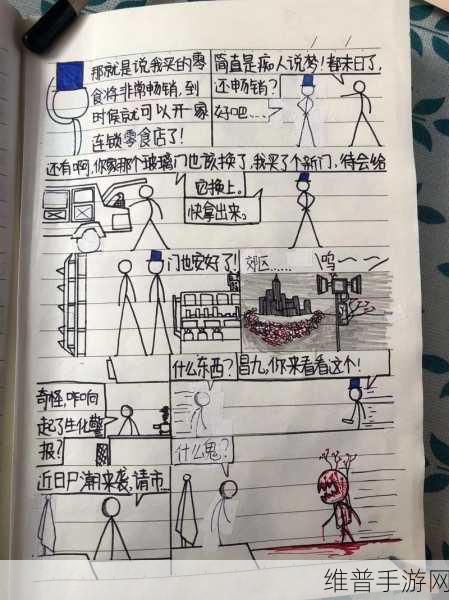 那就是说我买的零
食将非常畅销,到
时候就可以开一家
连锁零食店了!
简直是痴人说梦!都末日了,
还畅销?
好吧……
还有啊,你家那个玻璃门也该换了,我买了个新门,待会给
它换上。
快拿出来。
门也安好了!
郊区……
呜～～
什么东西?
昌九,你来看看这个!
奇怪,咋响
起了生化警
报?
什么鬼?
近日尸潮来袭,请市…
维普手游网